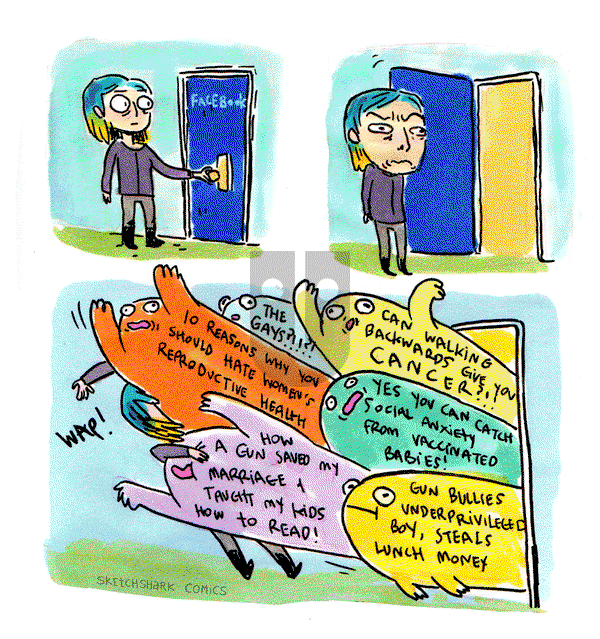 FACEBOOK
10 REASONS WHY YOU
SHOULD HATE WOMEN'S
REPRODUCTIVE HEALTH
THE
GAYS?!?!
CAN WALKING
BACKWARDS GIVE YOU
CANCER?!!!
YES YOU CAN CATCH
SOCIAL ANXIETY
FROM VACCINATED
BABIES!
WAP!
HOW
A GUN SAVED MY
MARRIAGE &
TAUGHT MY KIDS
HOW TO READ!
GUN BULLIES
UNDERPRIVILEGED
BOY, STEALS
LUNCH MONEY
SKETCHSHARK COMICS